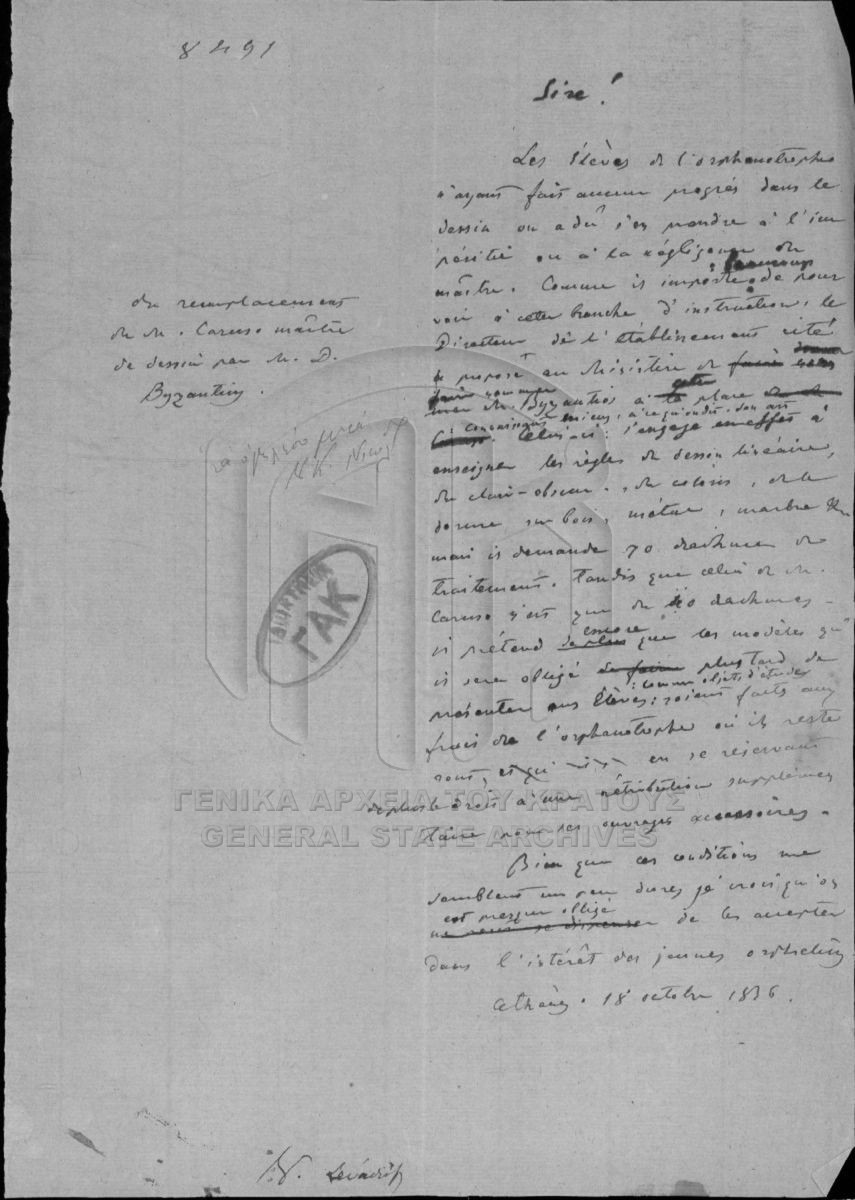 8291
Sire!
Les élèves de l'orphanotrophe
n'ayant fait aucun progrès dans le
dessin on a dû s'en prendre à l'im
péritie ou à la négligence du
beaucoup
maître. Comme il importe de pour
voir à cette branche d'instruction, le
Directeur de l'établissement cité
a proposé au Ministère de faire
nommer
M. Byzantios à cette place
Celui-ci s'engage en effet à
enseigner les règles du dessin linéaire,
du clair-obscur, du coloris, de la
dorure sur bois, métal, marbre
mais il demande 70 drachmes de
traitement. Tandis que celui de M.
Caruso n'est que de drachmes
il prétend encore que les modèles qu'
il sera obligé de faire plus tard de
comme objets d'études
présenter aux élèves soient faits aux
frais de l'orphanotrophe où ils reste
ront, en se réservant
de plus le droit à une rétribution supplémen
taire pour ses ouvrages accessoires.
Bien que ces conditions me
semblent un peu dures je crois qu'on
est presque obligé
de les accepter
dans l'intérêt des jeunes orphelins
Athènes. 18 octobre 1836.
du remplacement
de M. Caruso maître
de dessin par M. D.
Byzantios.
ΙΔΙΟΚΤΗΣΙΑ
ΓΑΚ
ΓΕΝΙΚΑ ΑΡΧΕΙΑ ΤΟΥ ΚΡΑΤΟΥΣ
GENERAL STATE ARCHIVES